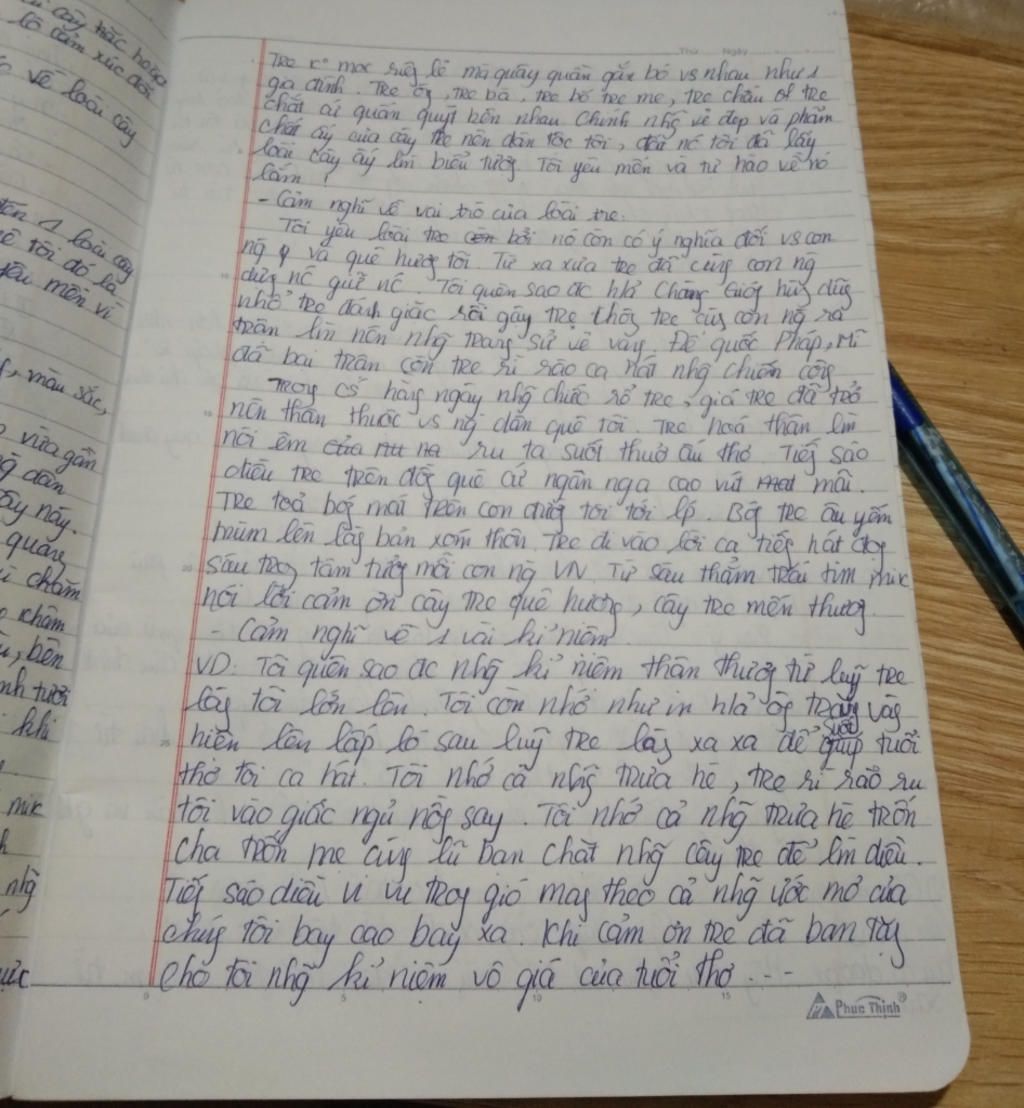 cây trắc hoặc
lô cảm xúc đối
về loài cây
tên 1 loài cây
quê tôi đó là
yêu mến vì
, màu sắc,
vừa gần
dân
ấy này.
quang
chăm
khăm
, bên
nh tươi
khi
mik
nhg
Thứ Ngày
Tre k° mọc riêg lẻ mà quây quần gắn bó vs nhau như 1
gia đình. Tre ôg, tre bà, tre bố tre mẹ, tre cháu of tre
chất cứ quấn quýt bên nhau Chính nhg vẻ đẹp và phẩm
chất ấy của cây tre nên dân tộc tôi, đất nc tôi đã lấy
loài cây ấy lm biểu tượg. Tôi yêu mến và tự hào về nó
lắm!
- Cảm nghĩ về vai trò của loài tre.
Tôi yêu loài tre còn bởi nó còn có ý nghĩa đối vs con
ng và quê hươg tôi. Từ xa xưa tre đã cùg con ng
dựg nc giữ nc. Tôi quên sao đc h/ả Chàng Gióg hùg dũg
nhổ tre đánh giặc rồi gậy tre chôg tre cùg con ng ra
trận lm nên nhg trang sử vẻ vàg. Đế quốc Pháp, Mĩ
đã bại trận còn tre rì rào ca hát nhg chiến côg
Trog cs hàg ngày nhg chiếc rổ tre, giá tre đã trở
nên thân thuộc vs ng dân quê tôi. Tre hoá thân lm
nôi êm của ru ta suốt thuở ấu thơ. Tiếg sáo
diều tre trên đồg quê cứ ngân nga cao vút mãi.
Tre toả bóg mát trên con đườg tôi tới lớp. Bóg tre âu yếm
trùm lên làg bản xóm thôn. Tre đi vào lời ca tiếg hát đọg
sâu trog tâm tưởg mỗi con ng VN. Từ sâu thẳm trái tim mik
nói lời cảm ơn cây tre quê hương, cây tre mến thươg.
- Cảm nghĩ về 1 vài kỉ niệm
VD: Tôi quên sao đc nhg kỉ niệm thân thươg từ luỹ tre
làg tôi lớn lên. Tôi còn nhớ như in h/ả ôg trăg vàg
hiện lên lấp ló sau luỹ tre làg xa xa để tuổi
thơ tôi ca hát. Tôi nhớ cả nhg trưa hè, tre rì rào ru
tôi vào giấc ngủ nồg say. Tôi nhớ cả nhg trưa hè trốn
cha trốn mẹ cùg lũ bạn chặt nhg cây tre để lm diều.
Tiếg sáo diều vi vu trog gió mag theo cả nhg ước mơ của
chúg tôi bay cao bay xa. Khi cảm ơn tre đã ban tặg
cho tôi nhg kỉ niệm vô giá của tuổi thơ ...
0 5 10 15
Phuc Thinh®